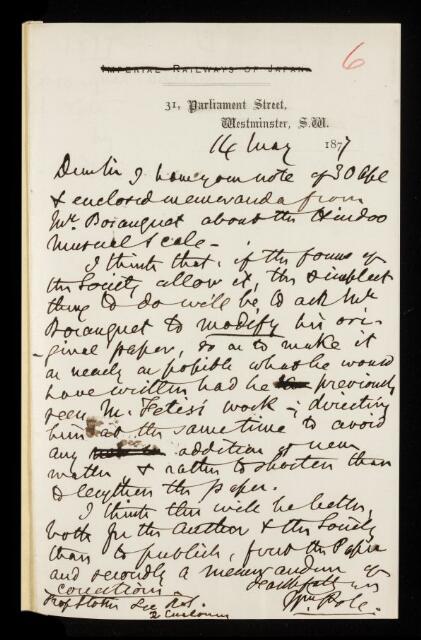 6
IMPERIAL RAILWAYS OF JAPAN
31, Parliament Street,
Westminster, S.W.
14 May 1877
Dear Sir I have your note of 30 Apl
& enclosed memoranda from
Mr. Bosanquet about the Hindoo
musical scale –
I think that, if the forms of
the Society allow it, the simplest
thing to do will be to ask Mr
Bosanquet to modify his ori-
-ginal paper, so as to make it
as nearly as possible what he would
have written had he previously
seen M. Fetis's work – ; directing
him at the same time to avoid
any addition of new
matter & rather to shorten than
to lengthen the paper.
I think this will be better,
both for the author & the Society
than to publish, first the Paper
and secondly a memorandum of
corrections.
Faithfully yrs
Wm Pole.
Prof Stokes Sec R.S.
2 enclosures